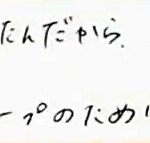 たんだから、
ープのため